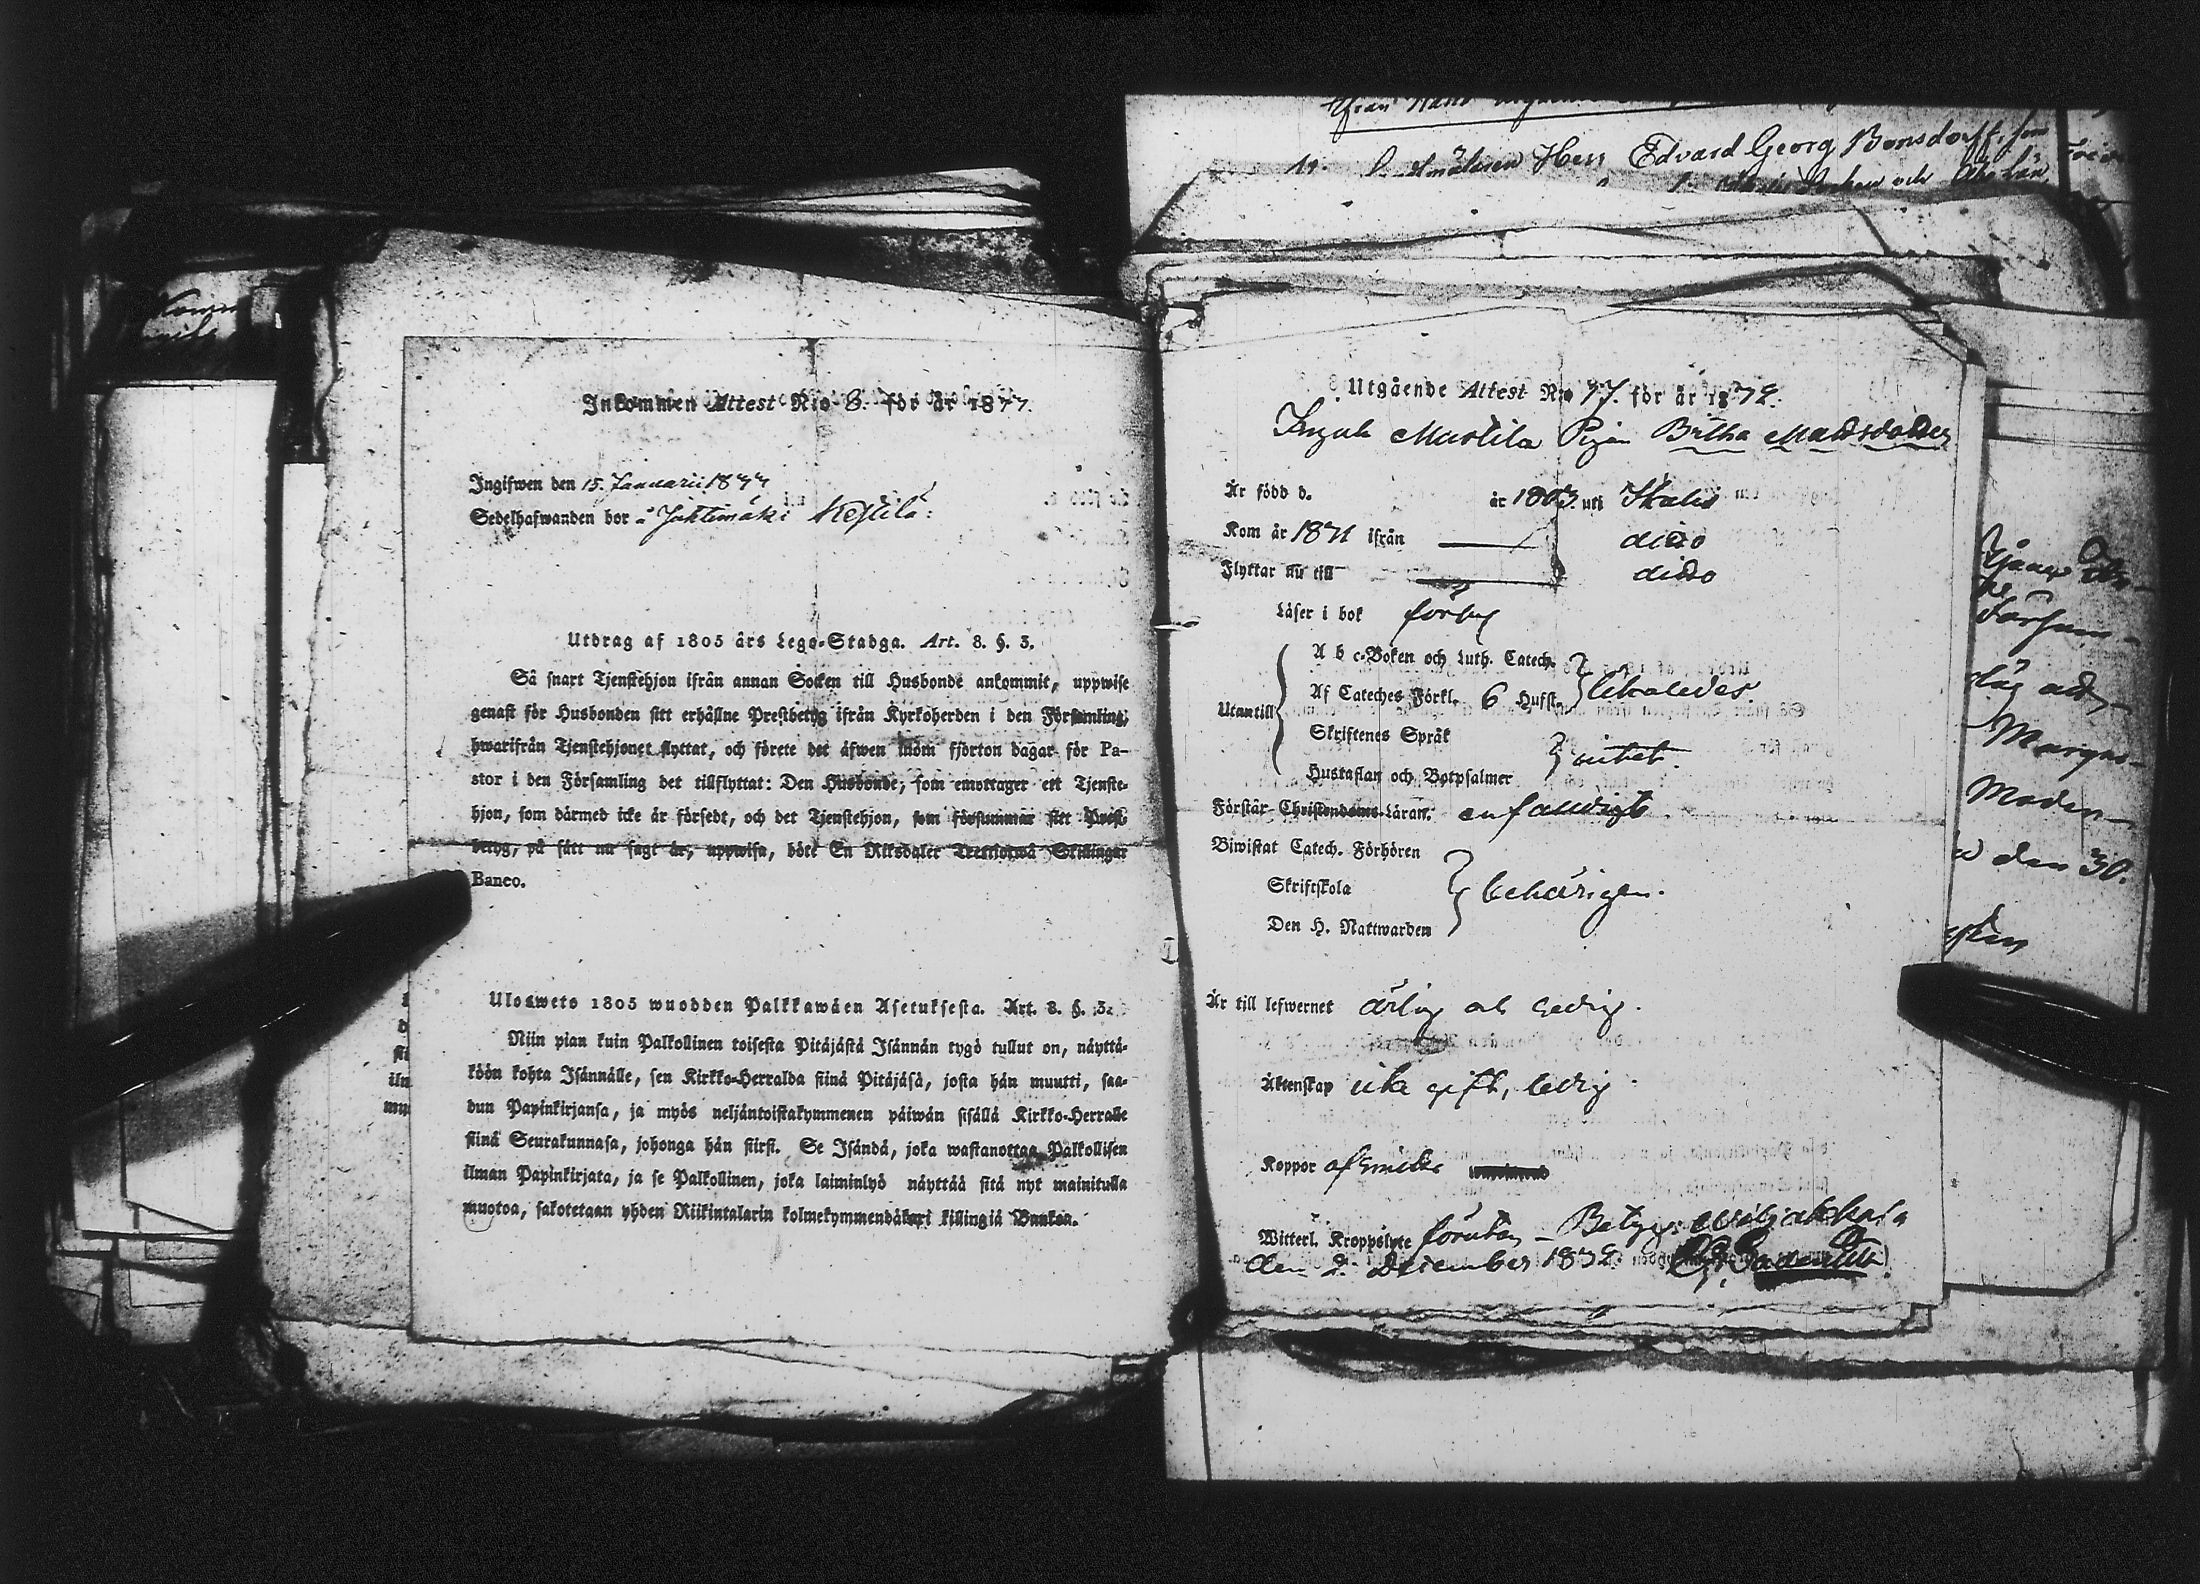 Inkommen Attest N:o 8. för år 1877.
Ingifwen den 15. Januarii 1877
Sedelhafwanden bor å
Utdrag af 1805 års Lego-Stadga. Art. 8. §. 3.
Så snart Tjenstehjon ifrån annan Socken till Husbonde ankommit, uppwise
genast för Husbonden sitt erhållne Prestbetyg ifrån Kyrkoherden i den Församling,
hwarifrån Tjenstehjonet flyttat, och förete det äfwen inom fjorton dagar för Pa-
stor i den Församling det tillflyttat: Den Husbonde, som emottager ett Tjenste-
hjon, som därmed icke är försedt, och det Tjenstehjon, som försummar sitt Prest-
betyg, på sätt nu sagt är, uppwisa, böte En Riksdaler Trettiotwå Skillingar
Banco.
Ulosweto 1805 wuodden Palkkawäen Asetuksesta. Art. 8. §. 3.
Niin pian kuin Palkollinen toisesta Pitäjästä Isännän tygö tullut on, näyttä-
köön kohta Isännälle, sen Kirkko-Herralda siinä Pitäjäsä, josta hän muutti, saa-
dun Papinkirjansa, ja myös neljäntoistakymmenen päiwän sisällä Kirkko-Herralle
siinä Seurakunnasa, johonga hän siirsi. Se Isändä, joka wastanottaa Palkollisen
ilman Papinkirjata, ja se Palkollinen, joka laiminlyö näyttää sitä nyt mainitulla
muotoa, sakotetaan yhden Riikintalarin kolmekymmendäkaxi killingiä Bankoa.
Herr Edvard Georg Bonsdorff, son
Utgående Attest N:o 77. för år 1872.
Mustila Pigan Britha Mattsdotter
Är född d. år 1803. uti Ikalis
Kom år 1871 ifrån ditto
Flyttar nu till ditto
Läser i bok försv.
A b c-Boken och Luth. Catech.
Utantill Af Cateches Förkl. 6 Hufst. likaledes
Skriftenes Språk
Hustaflan och Botpsalmer intet.
Förstår Christendoms-Läran. enfaldigt
Biwistat Catech. Förhören
Skriftskola behörigen.
Den H. Nattwarden
Är till lefwernet ärlig och sedig.
Äktenskap icke gift, ledig.
Koppor
Witterl. Kroppslyte förutan
den 2. December 1872
den 30.